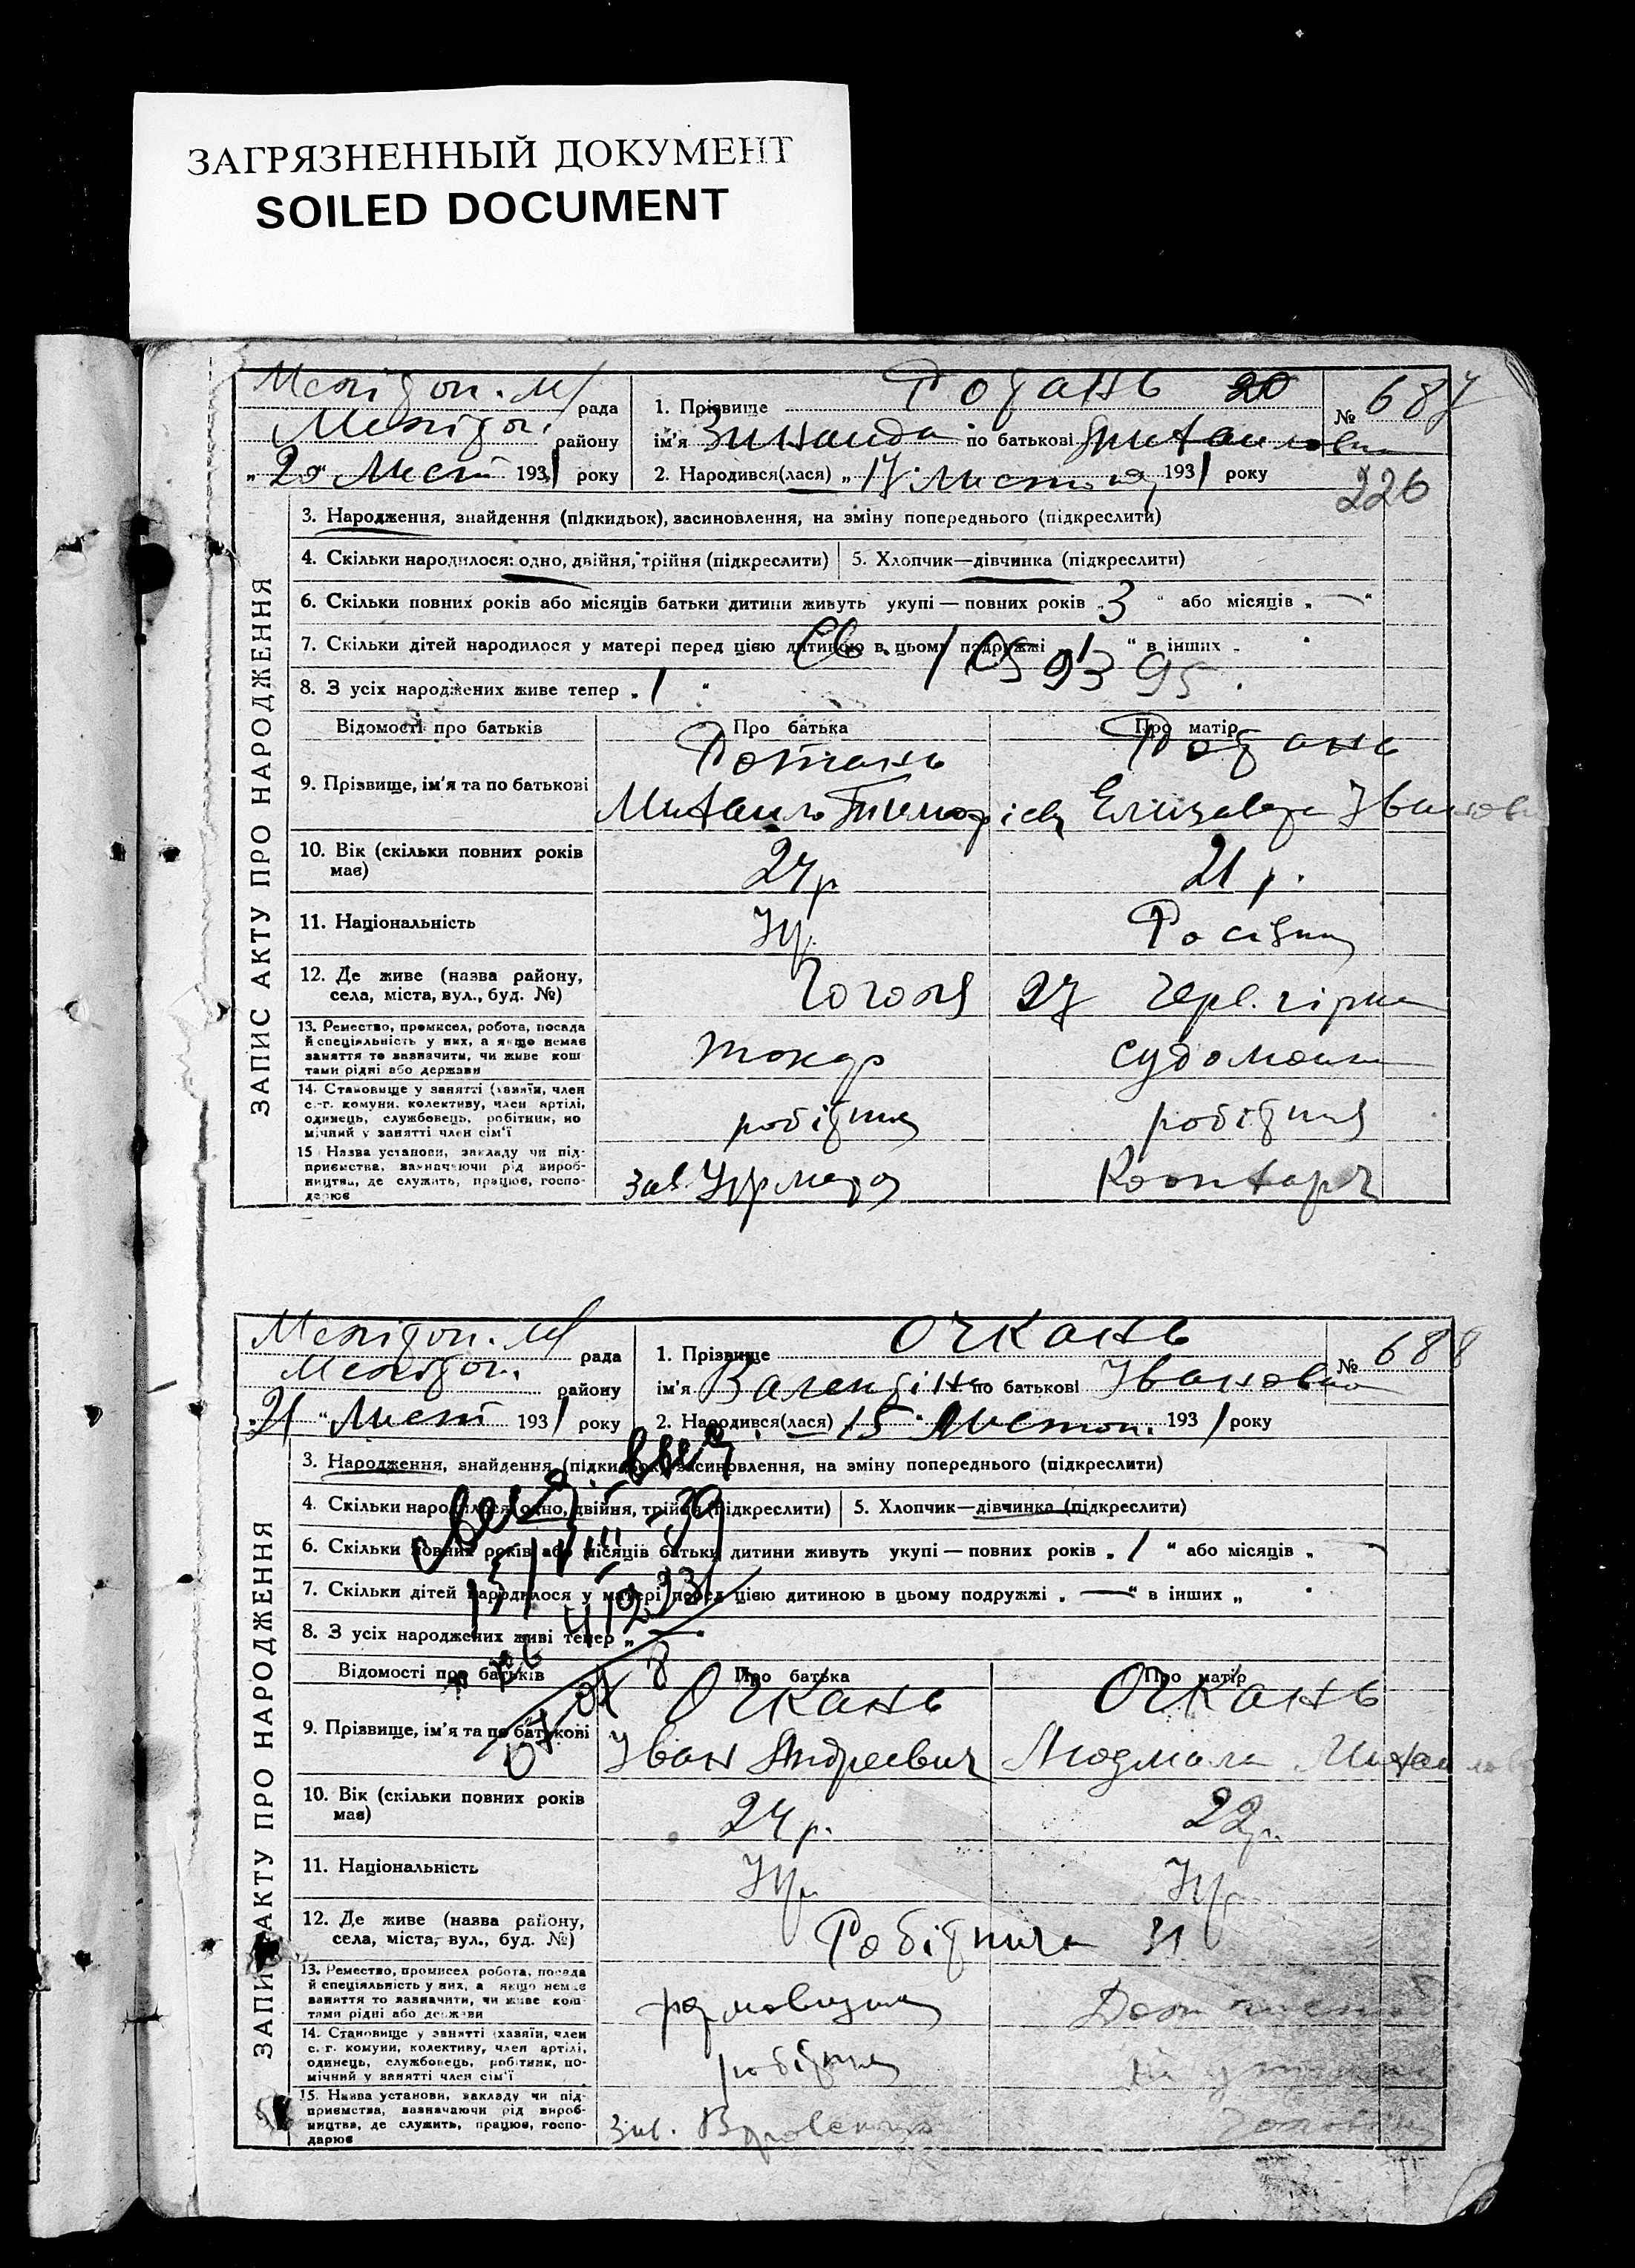 ЗАГРЯЗНЕННЫЙ ДОКУМЕНТ
SOILED DOCUMENT
рада
району
„20 Лист 1931 року
1. Прізвище Ротань 20
№ 687
ім'я Зинаида по батькові Михаиловна
2. Народився(лася) „17 Листопад 1931 року
226
ЗАПИС АКТУ ПРО НАРОДЖЕННЯ
3. Народження, знайдення (підкидьок), засиновлення, на зміну попереднього (підкреслити)
4. Скільки народилося: одно, двійня, трійня (підкреслити) 5. Хлопчик—дівчинка (підкреслити)
6. Скільки повних років або місяців батьки дитини живуть укупі — повних років „3“ або місяців „—“
7. Скільки дітей народилося у матері перед цією дитиною в цьому подружжі „1“ в інших „
8. З усіх народжених живе тепер „1“
Відомості про батьків Про батька Про матір
9. Прізвище, ім'я та по батькові
Ротань
Ротань
Михаил Єлизавета
10. Вік (скільки повних років має) 24р 21 р.
11. Національність Ук.
12. Де живе (назва району, села, міста, вул., буд. №) Гоголя 27
13. Ремество, промисел, робота, посада й спеціяльність у них, а якщо немає заняття то зазначити, чи живе коштами рідні або держави
токар судомойка
14. Становище у занятті (хазяїн, член с.-г. комуни, колективу, член артілі, одинець, службовець, робітник, помічний у занятті член сім'ї
робітник робітниця
15 Назва установи, закладу чи підприємства, вазначаючи рід виробництва, де служить, працює, господарює
зав.
рада
району
„21“ Лист 1931 року
1. Прізвище Очкань
№ 688
ім'я Валентіна по батькові Івановна
2. Народився(лася) „15“ Листоп. 1931 року
ЗАПИС АКТУ ПРО НАРОДЖЕННЯ
3. Народження, знайдення (підкидьок), засиновлення, на зміну попереднього (підкреслити)
4. Скільки народилося: одно, двійня, трійня (підкреслити) 5. Хлопчик—дівчинка (підкреслити)
6. Скільки повних років або місяців батьки дитини живуть укупі — повних років „1“ або місяців „—
7. Скільки дітей народилося у матері перед цією дитиною в цьому подружжі „—“ в інших „
8. З усіх народжених живі тепер „—“
Відомості про батьків Про батька Про матір
9. Прізвище, ім'я та по батькові
Очкань Очкань
Іван Андреевич Людмила
10. Вік (скільки повних років має) 24р. 22р.
11. Національність Ук. Ук.
12. Де живе (назва району, села, міста, вул., буд. №) Робітнича 31
13. Ремество, промисел робота, посада й спеціяльність у них, а якщо немає заняття то зазначити, чи живе коштами рідні або держави
14. Становище у занятті (хазяїн, член с.-г. комуни, колективу, член артілі, одинець, службовець, робітник, помічний у занятті член сім'ї
робітник
15. Назва установи, закладу чи підприємства, вазначаючи рід виробництва, де служить, працює, господарює
зав.